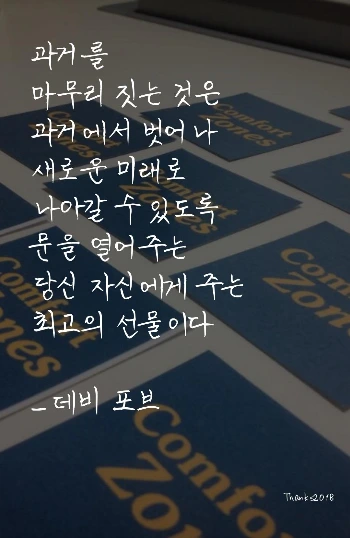 과거를
마무리 짓는 것은
과거에서 벗어나
새로운 미래로
나아갈 수 있도록
문을 열어주는
당신 자신에게 주는
최고의 선물이다
- 데비 포브
Thanks2018
Comfort
Zones
Comfort
Zones
Comfort
Zones
Comfort
Zones